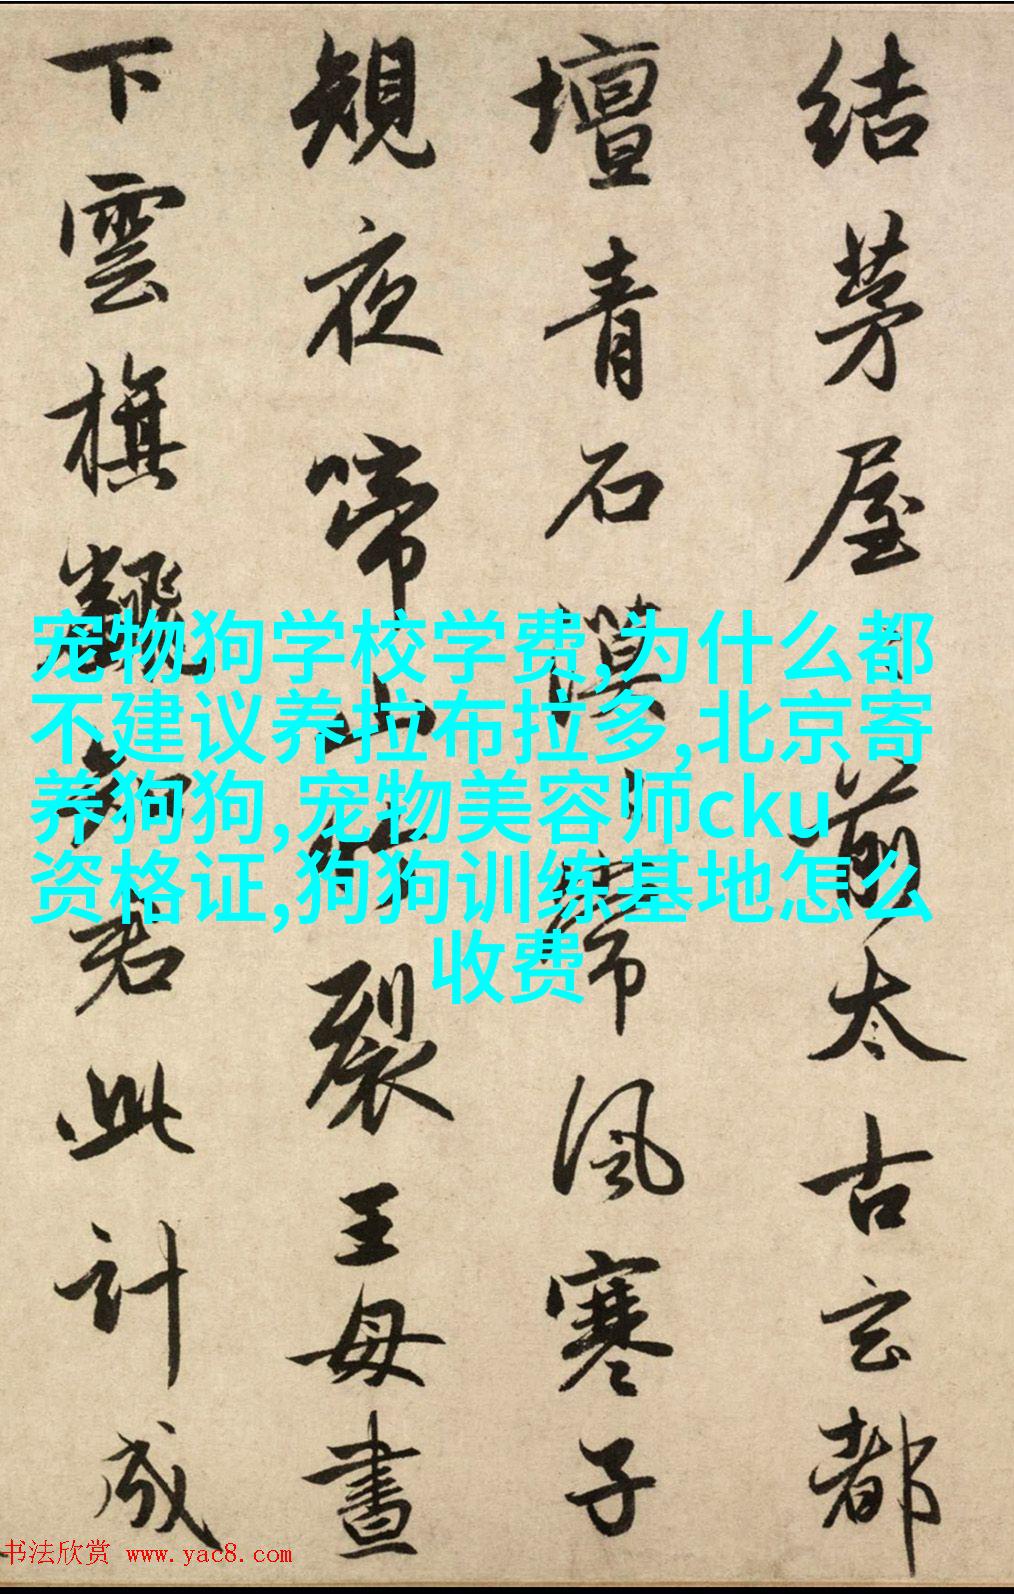 結茅屋〻前太古玄都
壇青石漠〻常風寒子
規夜啼山竹裂王母晝
下雲旗飜知君此計成
宠物狗学校学费,为什么都
不建议养拉布拉多,北京寄
养狗狗,宠物美容师cku
资格证,狗狗训练基地怎么
收费
书法欣赏 www.yac8.com